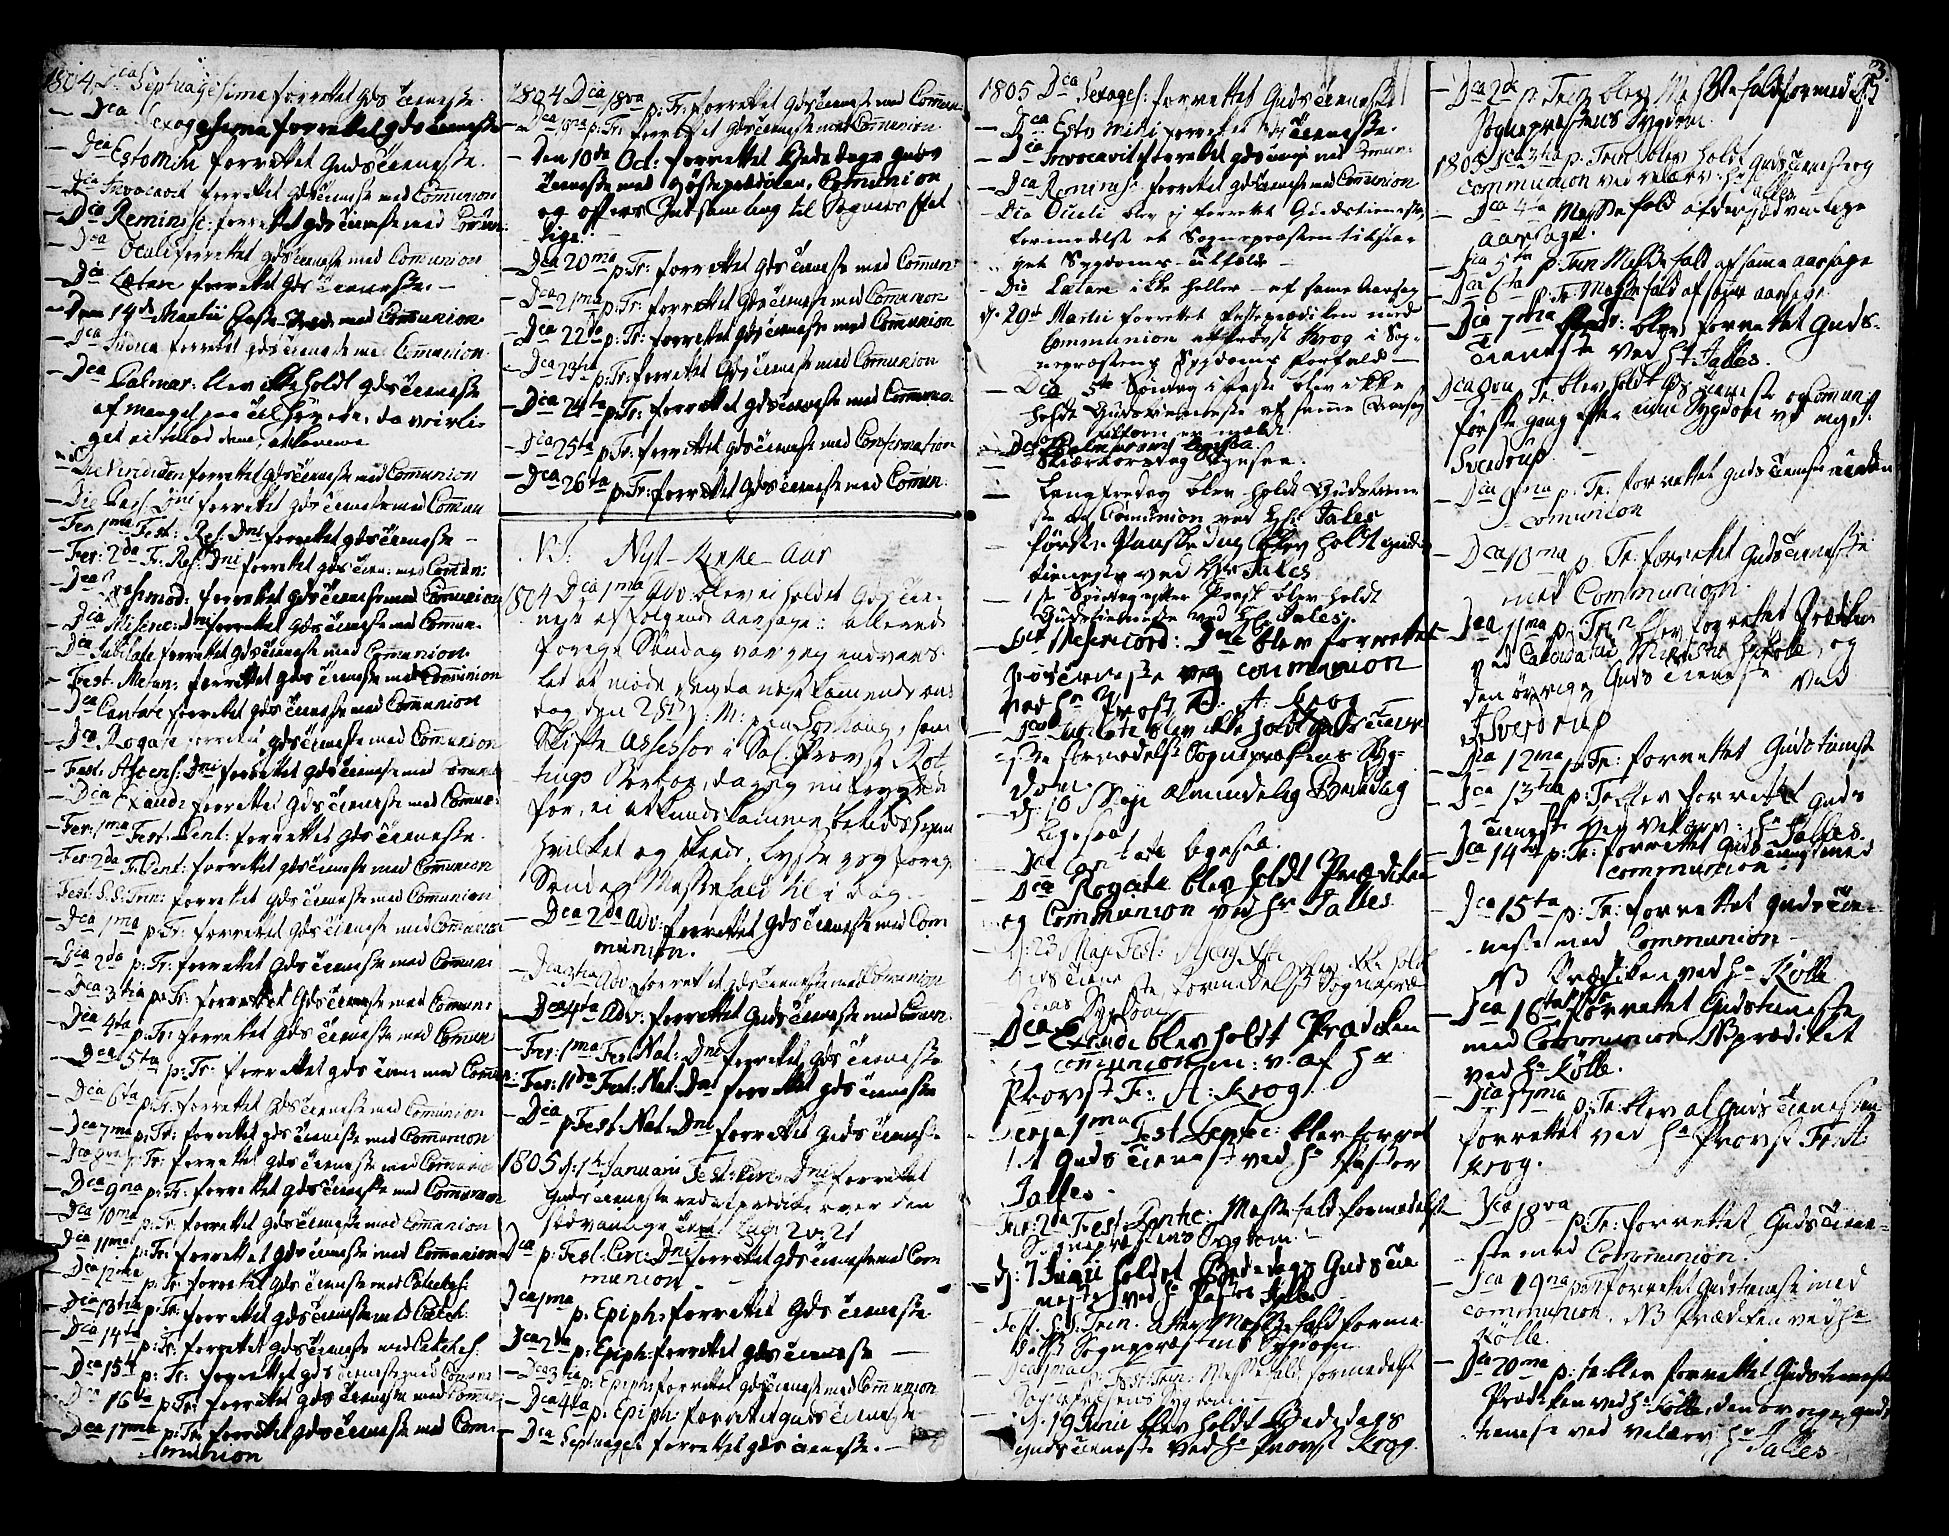 1804. Dca Septuagesime forrettet Gds tieneste.
— Dca Sexagesima forrettet gds tieneste
— Dca Estomihi forrettet Gudstieneste.
— Dca Invocavit forrettet gdstieneste med Communion
— Dca Reminisc: forrettet gdstieneste med Commun:
— Dca Oculi forrettet gdstieneste med Comunion
— Dca Lætare forrettet gds tieneste. —
— Den 14de Martii Faste med Communion.
— Dca Judica forrettet gdstieneste med Communion.
— Dca Palmar: blev ikke holdt gdstieneste
af mangel paa tilhørere, da veirli-
get ei tillod dem, at komme
— Die Viridium forrettet gdstieneste med Comunion
— Die Pass. Dni forrettet gdstieneste med Comun
— Fer. 1ma Fest: Res: Dni forrettet gdstieneste —
— Fer: 2da F: Res: Dni forrettet gdstien: med Comun:
— Dca Qvasimod: forrettet gdstieneste med Comunion
— Dca Misericr: Dni forrettet gdstieneste med Comun.
— Dca Jubilate forrettet gdstieneste med Comunion.
— Fest. Metan: forrettet gdstieneste med Communion
— Dca Cantate forrettet gdstieneste med Communion
— Dca Rogate forrettet gdstieneste med Communion
— Fest: Ascens: Dni forrettet gdstieneste med Comun
— Dca Exaudi forrettet gdstieneste med Comun:
— Fer: 1ma Fest: Pent: forrettet gdstieneste.
— Fer: 2da F: Pent: forrettet gdstieneste med Comunion
Fest: S.S. Trin: forrettet gdstieneste med Comunion
— Dca 1ma p: Tr: forrettet gdstieneste med Comunion
— Dca 2da p: Tr: forrettet gdstieneste med Comun:
— Dca 3tia p: Tr: forrettet Gdstieneste med Comun:
— Dca 4ta p: Tr: forrettet gdstieneste med Comun
— Dca 5ta p: Tr: forrettet gdstien: med Comun:
— Dca 6ta p: Tr: forrettet gdstieneste med Comunion
— Dca 7ma p: Tr: forrettet gdstieneste med Communion
— Dca 8va p: Tr: forrettet gdstieneste med Comunion
— Dca 9na p: Tr: forrettet gdstieneste med Communion
— Dca 10ma p: Tr: forrettet gdstieneste med Comunion
— Dca 11ma p: Tr: forrettet gdstieneste med Communion
— Dca 12ma p: Tr: forrettet gdstieneste med Cateches:
— Dca 13tia p: Tr: forrettet gdstieneste med Catech:
— Dca 14ta p: Tr: forrettet gdstieneste med Cateches:
— Dca 15ta p: Tr: forrettet gdstieneste med Comun
— Dca 16ta p: Tr: forrettet gdstieneste med Comun
— Dca 17ma p: Tr: forrettet gdstieneste med Com-
munion
1804 Dca 18va p: Tr: forrettet gdstieneste med Comun
— Dca 19na p: Tr: forrettet gdstieneste med Comunion.
— Den 10de Oct: forrettet Bededags guds
tieneste med Høstprædiken, Comunion
og offers Indsamling til Sognets fat-
tige. —
— Dca 20ma p: Tr: forrettet gdstieneste med Comun:
— Dca 21ma p: Tr: forrettet gdstieneste med Comunion
— Dca 22da p: Tr: forrettet gdstieneste med Communion
— Dca 23tia p: Tr: forrettet Gdstieneste med Comunion
— Dca 24ta p: Tr: forrettet gdstieneste med Comun.
— Dca 25ta p: Tr: forrettet gdstieneste med Confirmation
— Dca 26ta p: Tr: forrettet gdstieneste med Comun.
N.B. Nyt-Kirke-Aar
1804 Dca 1ma Adv: blev ei holdet gdstie-
neste af følgende Aarsage: allerede
forrige Søndag var jeg indvars-
let at møde, den da næstkommende ons
dag den 28de p: M: paa , som
Skifte Assessor i Sal: Provst Rot-
tings Sterboe, da jeg mueligens
for, ei at kunde komme betids hiem
hvilket og skeede, lyste jeg forrig
Søndag Messefald til i Dag.
— Dca 2da Adv: forrettet gdstieneste med Com-
munion.
— Dca 3tia Adv: forrettet gdstieneste med Comunion
— Dca 4ta Adv: forrettet Gudstieneste med Comun.
— Fer: 1ma Fest Nat: Dni forrettet gdstieneste
— Fer: 11da Fest: Nat: Dni forrettet gdstieneste
— Dca p Fest: Nat: Dni forrettet gudstieneste
1805 d: 1ste Januarii Fest: Circ: Dni forrettet
Gudstieneste ved at prædike over den
sædvanlige Text Luc: 2 v: 21
Dca p: Fest: Circ: Dni forrettet gdstieneste med Com
munion —
Dca 1ma p. Epiph: forrettet gdstieneste
Dca 2da p: Epiph: forrettet gdstieneste —
— Dca 3tia p: Epiph: forrettet gdstieneste med Communion
— Dca 4ta p. Epiph: forrettet gudstieneste
— Dca Septuages: forrettet gdstieneste. —
1805 Dca Sexages: forrettet Gudstieneste
— Dca Esto mihi forrettet gdstieneste.
— Dca Invocavit forrettet gdstieneste med Comun:
— Dca Reminisc: forrettet gdstieneste med Comunion
— Dca Oculi blev ej forrettet Gudstieneste,
formedelst at Sognepræsten
get Sygdoms tilfælde —
— Dca Lætare ikke heller — af samme Aarsag
d. 29de Martii forrettet Fasteprædiken med
Communion af Provst Krog i Sog-
nepræstens Sygdoms forfald —
— Dca 5te Søndag i Faste blev ikke
holdt Gudstieneste af samme Aarsag
som meldt.
— Dca Palmarum ligesaa.
— Skiertorsdag ligesaa.
— Langfredag blev holdt Gudstiene
ste og Communion ved Hr: Falles
— første Paaskedag blev holdt guds
tieneste ved Hr Falles
— 1ste Søndag efter Paask blev holdt
Gudstieneste ved Hr: Falles.
— Dca Misericord: Dni blev forrettet
gudstieneste og communion
ved Hr Provst F. A. Krog
— Dca Jubilate blev ikke holdt gudstiene
ste formedelst Sognepræstens Syg-
dom.
— d: 10 Maji almindelig Bededag
ligesaa
— Dca Cantate ligesaa.
— Dca Rogate blev holdt Prædiken
og Communion ved Hr Falles
d: 23 Maji Fest: Ascens blev ikke holdt
Gudstieneste, formedelst Sognepræ-
stens Sygdom
Dca Exaudi blev holdt Prædiken
og communion m: v: af Hr
Provst F: A: Krog.
Feria 1ma Fest Pentec: blev forret
tet Guds tieneste ved Hr Pastor
Falles.
Fer: 2da Fest Pentec: Messefald formedelst
Sognepræstens Sygdom. —
— d: 7 Junii holdet Bededags Gudstie
neste ved Hr Pastor Falles
— Fest: S:S: Trin: atter Messefald forme
delst Sognepræstens Sygdom
— Dca 1ma p: Fest: Trin: Messefald, formedelst
Sognepræstens Sygdom
— d. 19 Junii blev holdt Bededags
gudstieneste ved Hr Provst Krog.
3.
— Dca 2da p: Trin: blev Messefald formedelst
Sognepræstens Sygdom.
1805 Dca 3tia p: Trin: blev holdt gudstieneste og
communion ved velærv: Hr Falles
— Dca 4ta Messefald af den sædvanlige
aarsage.
— Dca 5ta p: Trin Messefald af samme aarsage
— Dca 6ta p: Tr: Messefald af samme aarsage.
— Dca 7ma blev forrettet Guds-
tieneste ved Hr Falles.
Dca 8va Tr: blev holdt Gdstieneste og Communion
første gang efter min Sygdom ved mig J:
Sverdrup —
— Dca 9na p: Tr: forrettet gudstieneste uden
comunion
— Dca 10ma p: Tr: forrettet gudstieneste
med Communion.
— Dca 11ma p: Trin blev forrettet Prædiken
ved Candidatus Ministerii Kølle, og
den øvrige Gudstieneste ved
J. Sverdrup
— Dca 12ma p: Tr: forrettet Gudstieneste
— Dca 13tia p: Tr blev forrettet guds
tieneste ved velærv: Hr Falles.
— Dca 14ta p: Tr: forrettet gudstieneste med
communion
— Dca 15ta p: Tr: forrettet gudstie-
neste med Communion —
NB Prædiken ved Hr Kølle
— Dca 16ta forrettet gudstieneste
med Communion NB prædiket
ved Hr Kølle.
— Dca 17ma p: Tr: blev al gudstienesten
forrettet ved Hr Provst Fr: A:
Krog.
— Dca 18va p: Tr: forrettet Gudstiene-
ste med Communion.
— Dca 19na p: Tr forrettet Gudstieneste med
communion. NB Prædiken ved Hr
Kølle.
— Dca 20ma p: Tr: blev forrettet Gudstieneste
Prædiken ved Hr Kølle, den øvrige guds
tieneste ved velærv: Hr Falles